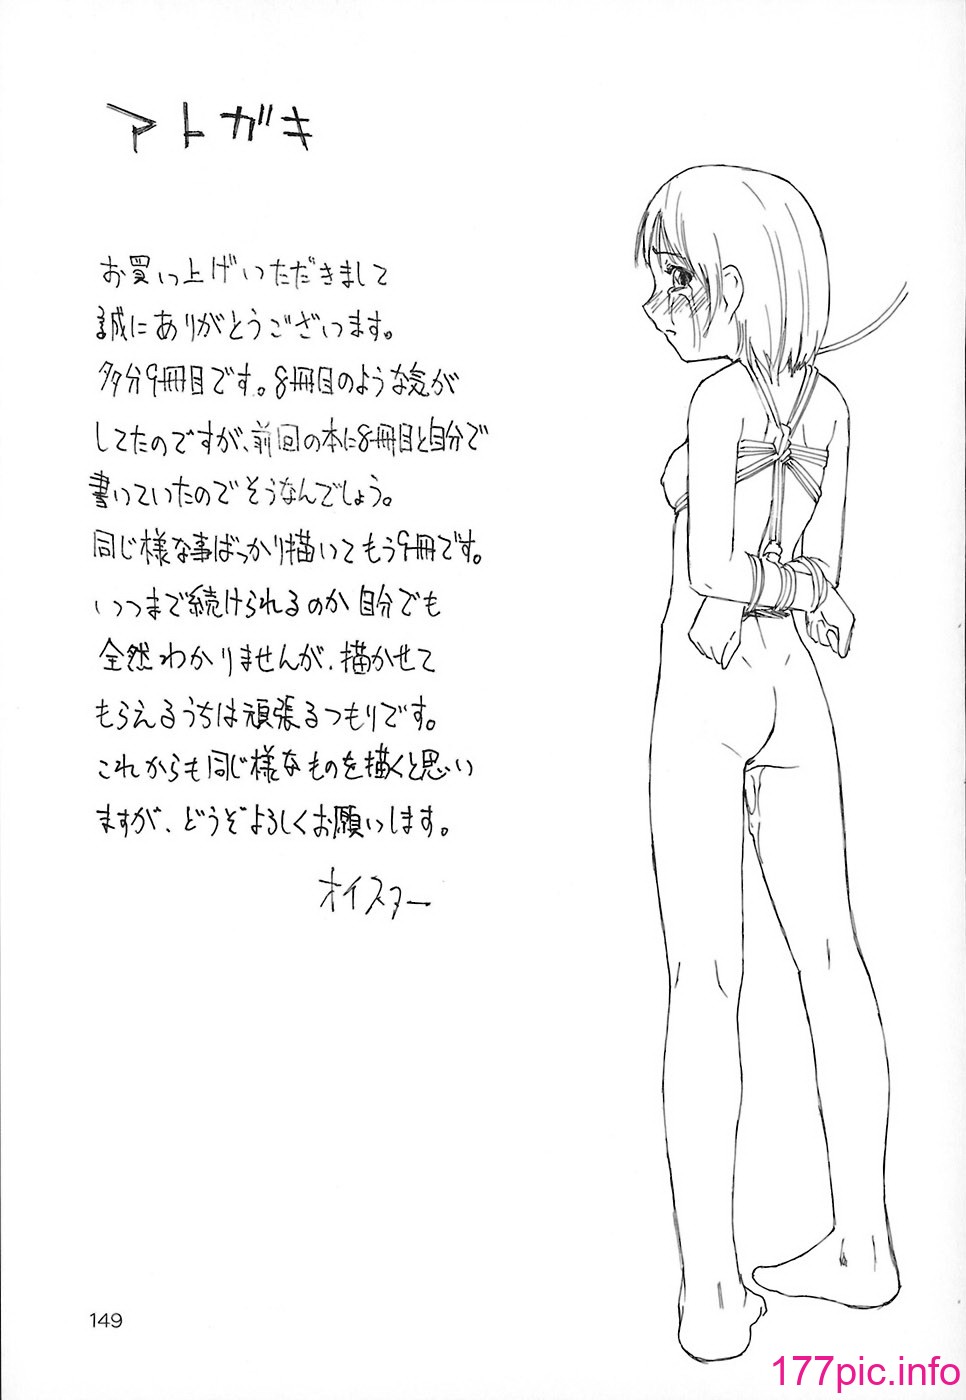 アトガキ
お買い上げいただきまして
誠にありがとうございます。
多分9冊目です。8冊目のような気が
してたのですが、前回の本に8冊目と自分で
書いていたのでそうなんでしょう。
同じ様な事ばっかり描いてもう9冊です。
いつまで続けられるのか自分でも
全然わかりませんが、描かせて
もらえるうちは頑張るつもりです。
これからも同じ様なものを描くと思い
ますが、どうぞよろしくお願いします。
オイスター
149
177pic.info